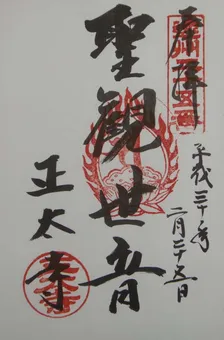 奉拝
平成三十年
二月二十五日
聖觀世音
正太寺